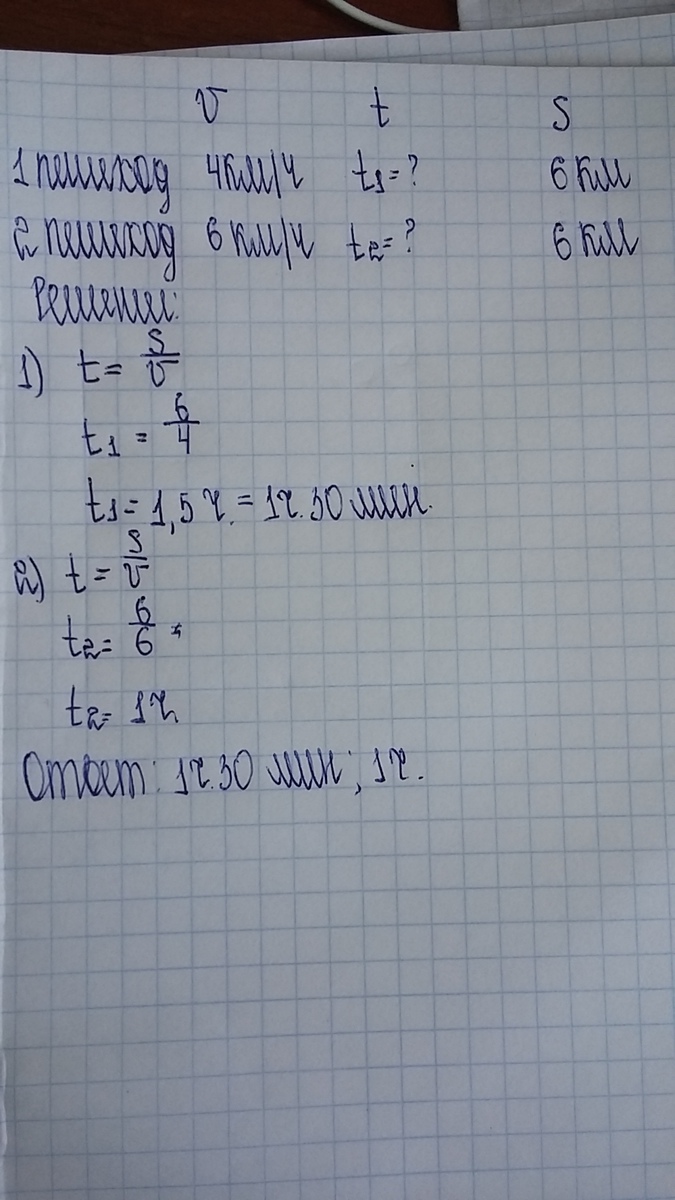 v t S
1 пешеход 4км/ч t1=? 6 км
2 пешеход 6 км/ч t2=? 6 км
Решение:
1) t = S/v
t1 = 6/4
t1= 1,5 ч. = 1ч.30 мин.
2) t = S/v
t2= 6/6
t2= 1ч
Ответ: 1ч.30 мин; 1ч.